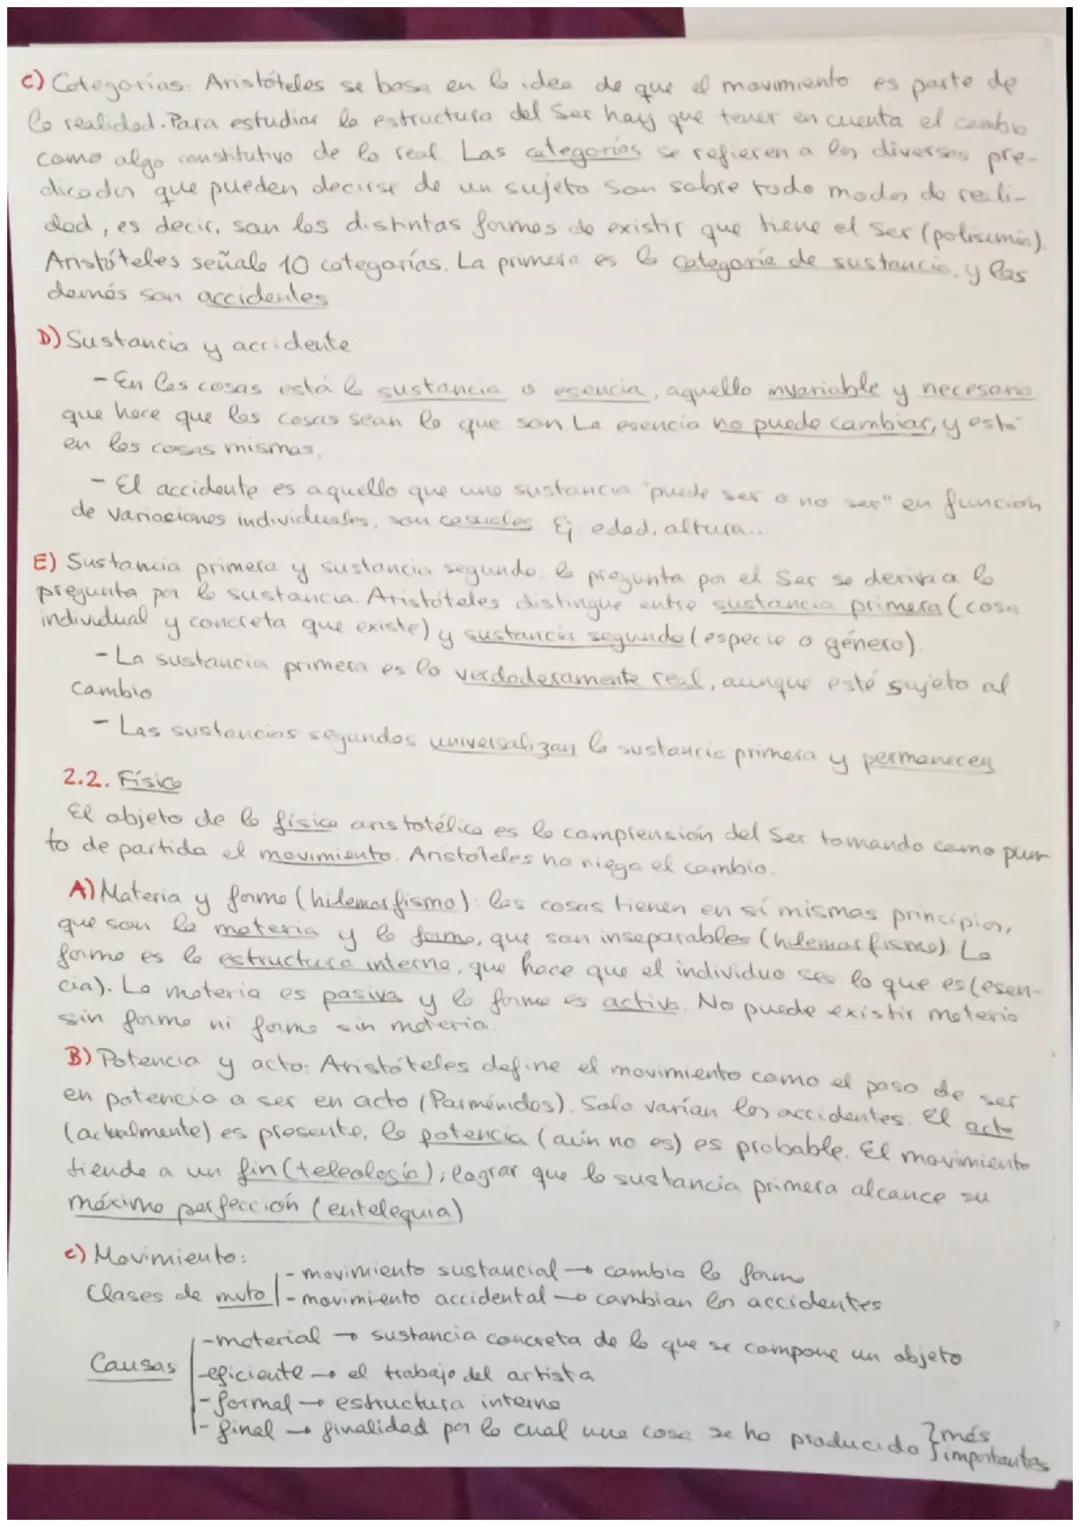 c) Categorías: Aristóteles se basa en la idea de que el movimiento es parte de
la realidad. Para estudiar la estructura del Ser hay que tener en cuenta el cambio
como algo constitutivo de lo real. Las categorías se refieren a los diversos pre-
dicados que pueden decirse de un sujeto son sobre todo modos de reali-
dad, es decir, son las distintas formas de existir que tiene el Ser (polisemia).
Aristóteles señala 10 categorías. La primera es la categoría de sustancia, y las
demás son accidentes
D) Sustancia y accidente
- En las cosas está la sustancia o esencia, aquello invariable y necesario
que hace que las cosas sean lo que son La esencia no puede cambiar, y está
en las cosas mismas.
- El accidente es aquello que una sustancia "puede ser o no ser" en función
de variaciones individuales, son casuales Ej edad, altura...
E) Sustancia primera y sustancia segunda: la pregunta por el Ser se deriva a la
pregunta por la sustancia. Aristóteles distingue entre sustancia primera (cosa
individual y concreta que existe) y sustancia segunda (especie o género).
- La sustancia primera es lo verdaderamente real, aunque esté sujeto al
cambio
- Las sustancias segundas universalizan la sustancia primera y permanecen
2.2. Física
El objeto de la física aristotélica es la comprensión del Ser tomando como pun
to de partida el movimiento. Aristóteles no niega el cambio.
A) Materia y forma (hilemorfismo): las cosas tienen en sí mismas principios,
que son la materia y la forma, que son inseparables (hilemorfismo). La
forma es la estructura interna, que hace que el individuo sea lo que es (esen-
cia). La materia es pasiva y la forma es activa. No puede existir materia
sin forma ni forma sin materia.
B) Potencia y acto: Aristóteles define el movimiento como el paso de ser
en potencia a ser en acto (Parménides). Solo varían los accidentes. El acto
(actualmente) es presente, la potencia (aún no es) es probable. El movimiento
tiende a un fin (teleología); lograr que la sustancia primera alcance su
máxima perfección (entelequia)
c) Movimiento:
- movimiento sustancial → cambia la forma
Clases de mvto - movimiento accidental → cambian los accidentes
- material → sustancia concreta de la que se compone un objeto
Causas - eficiente → el trabajo del artista
- formal → estructura interna
- final → finalidad por la cual una cosa se ha producido } más
importantes